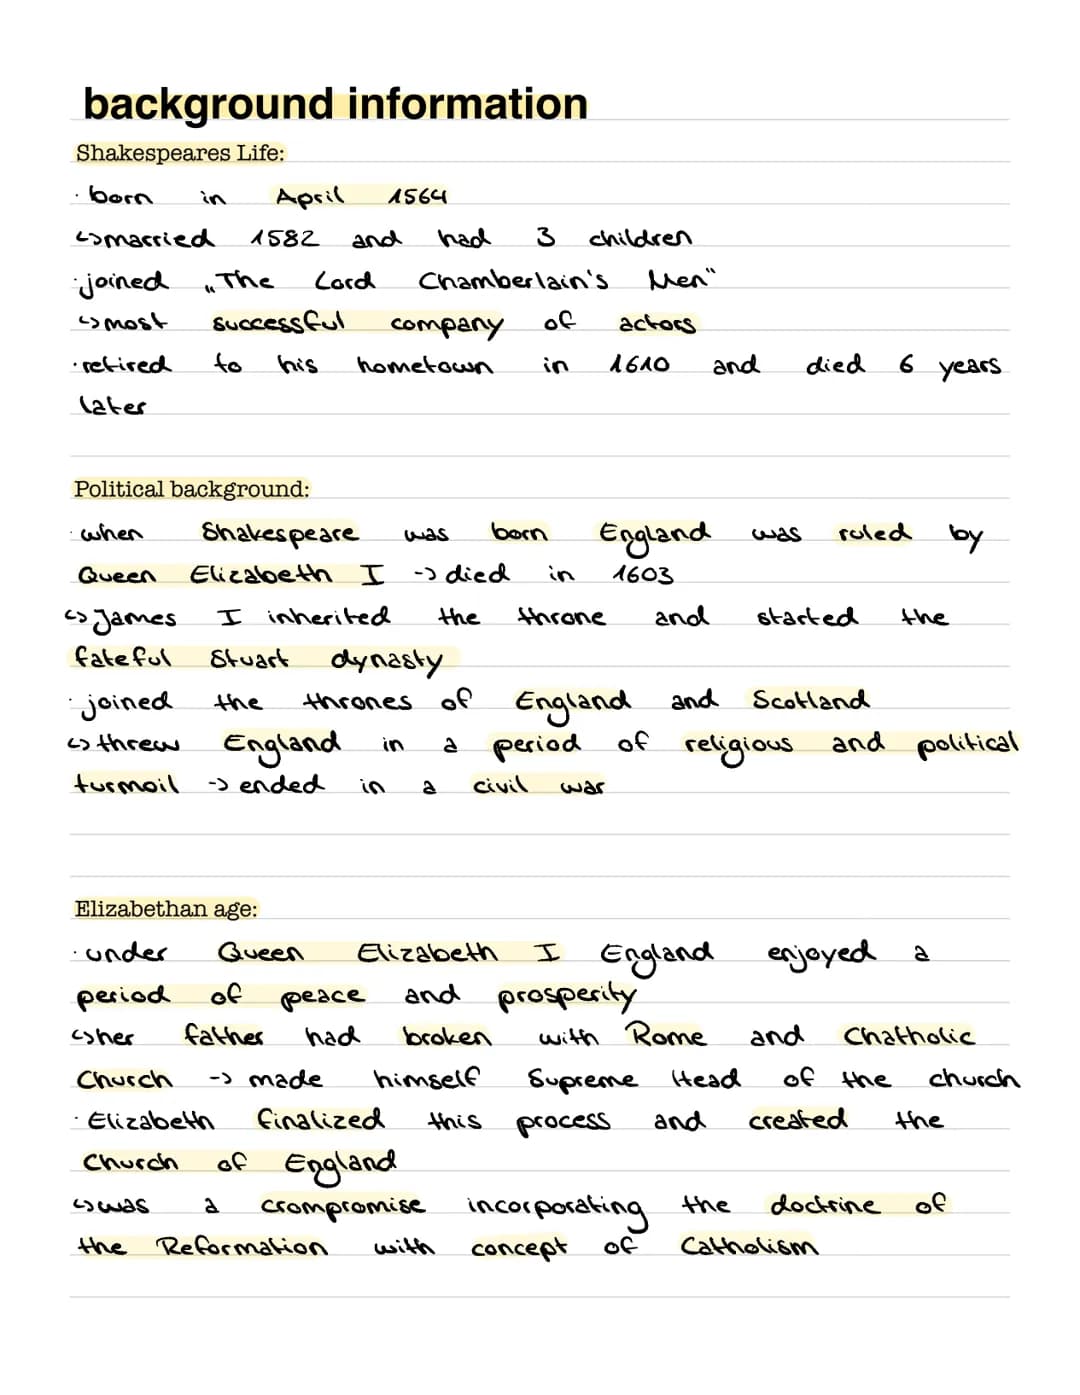 background information
Shakespeares Life:
· born in April 1564
↳married 1582 and had 3 children
· joined „The Lord Chamberlain's Men"
↳most successful company of actors
· retired to his hometown in 1610 and died 6 years
later
Political background:
· when Shakespeare was born England was ruled by
Queen Elizabeth I -> died in 1603
↳ James I inherited the throne and started the
fateful Stuart dynasty
· joined the thrones of England and Scotland
↳ threw England in a period of religious and political
turmoil -> ended in a civil war
Elizabethan age:
· under Queen Elizabeth I England enjoyed a
period of peace and prosperity
↳her father had broken with Rome and Chatholic
Church -> made himself Supreme Head of the church
· Elizabeth finalized this process and created the
Church of England
↳was a crompromise incorporating the doctrine of
the Reformation with concept of Catholism